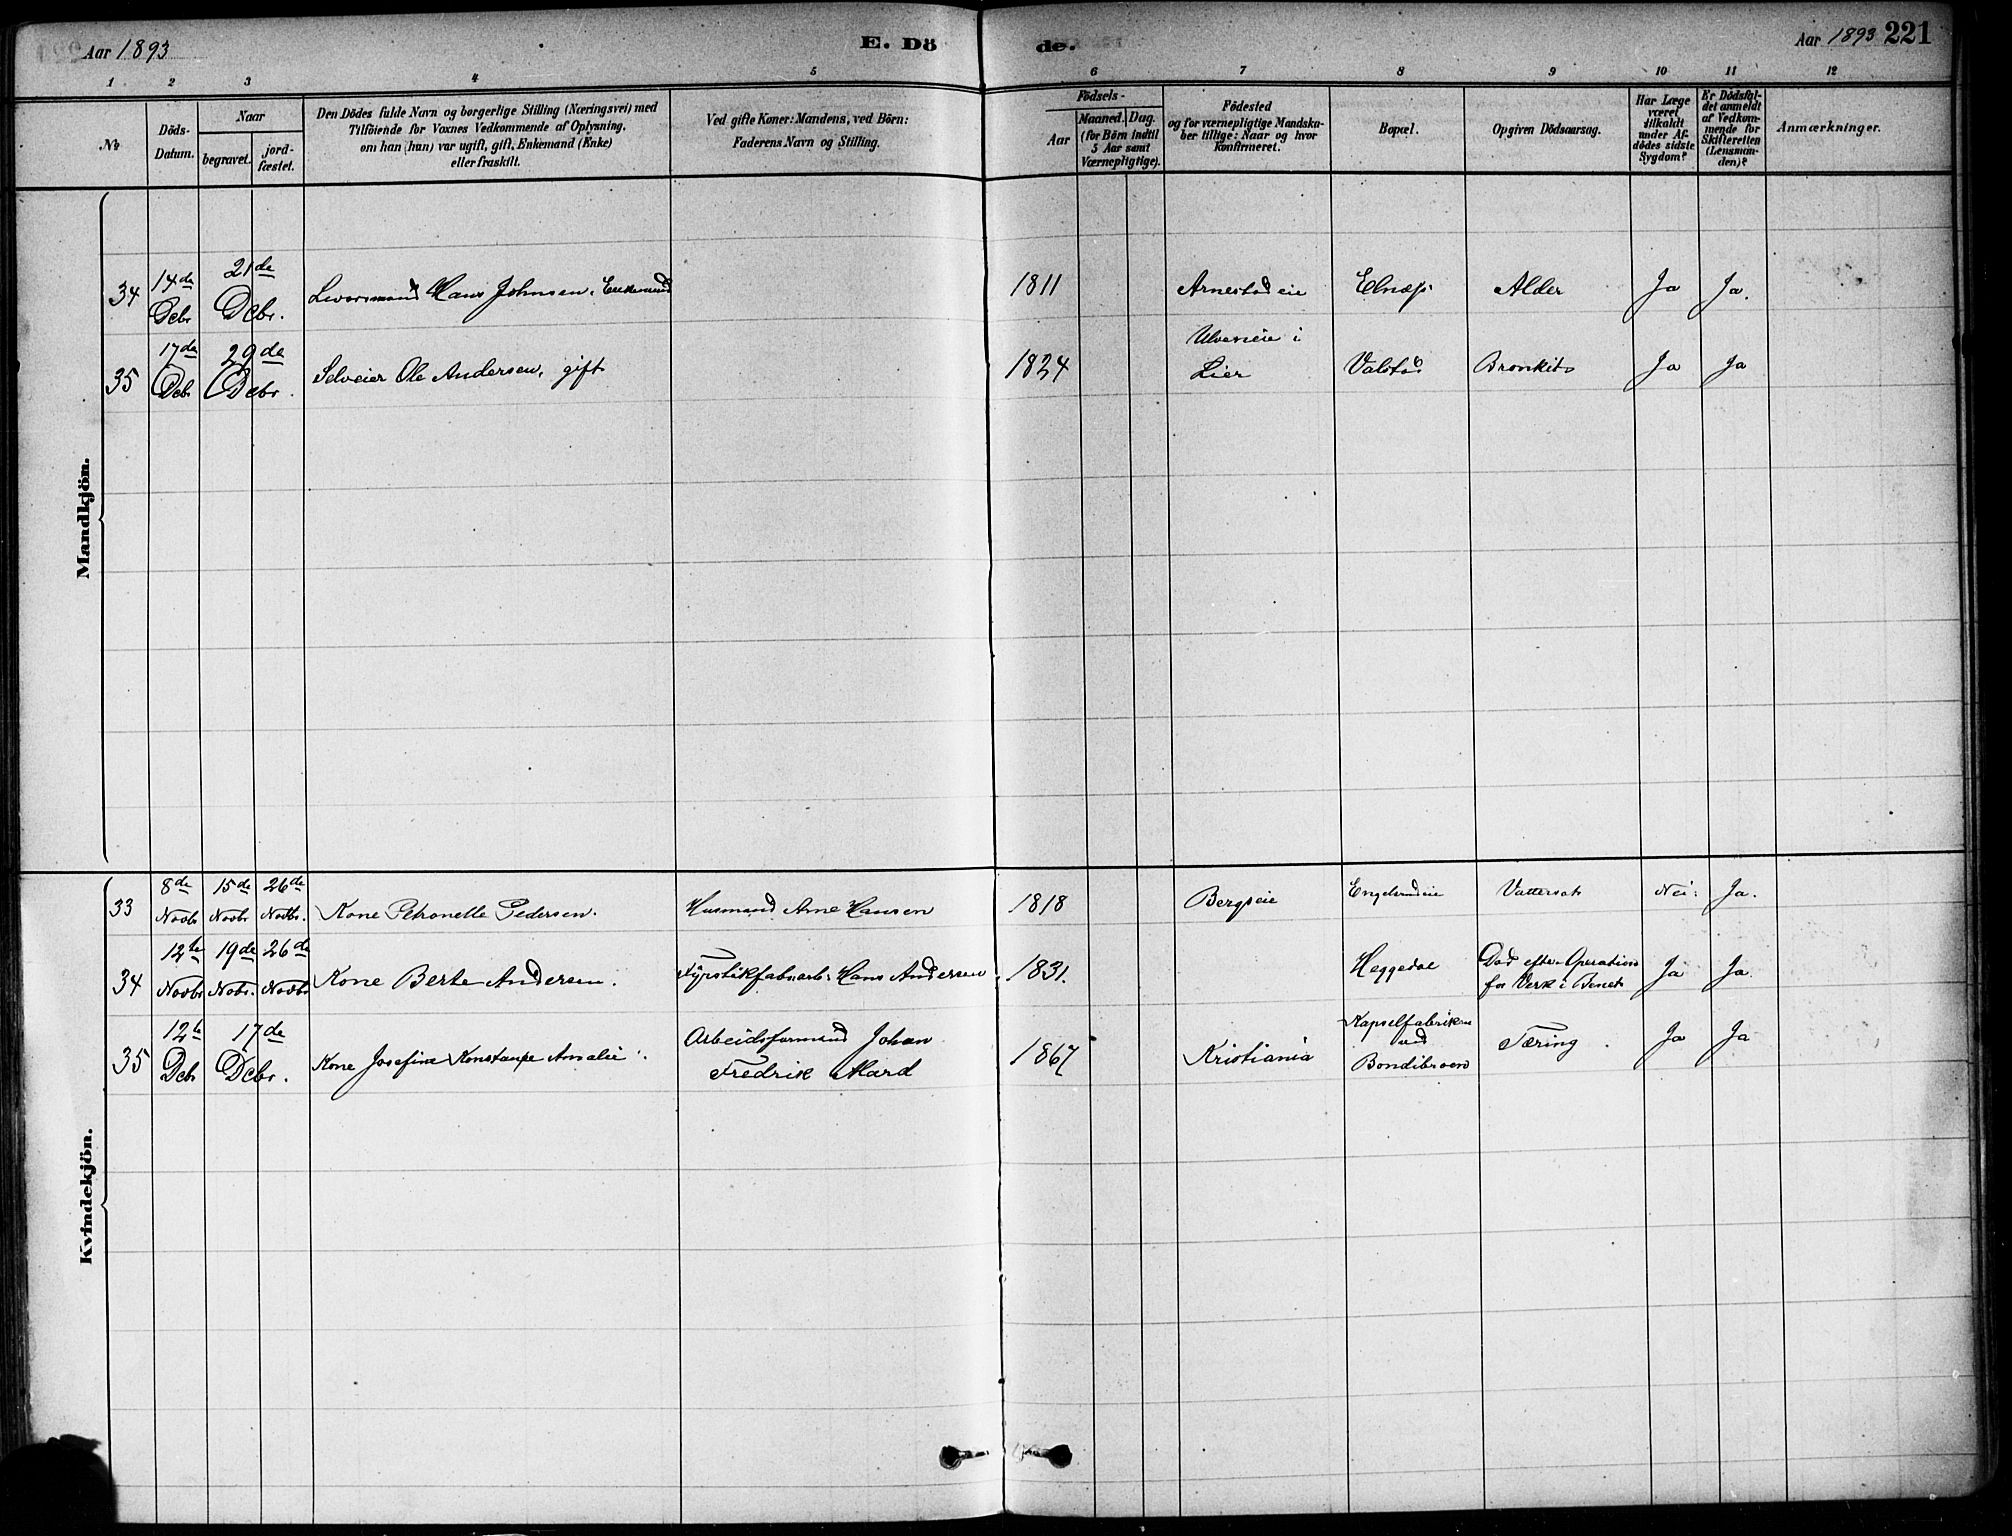 Aar 1893
E. Dö
de.
Aar 1893 221
1 2 3 4 5 6 7 8 9 10 11 12
No
Döds-
Datum.
Naar
begravet.
jord-
fæstet.
Den Dödes fulde Navn og borgerlige Stilling (Næringsvei) med
Tilföiende for Voxnes Vedkommende af Oplysning,
om han (hun) var ugift, gift, Enkemand (Enke)
eller fraskilt.
Ved gifte Koner: Mandens, ved Börn:
Faderens Navn og Stilling.
Födsels-
Aar
Maaned. Dag.
(for Börn indtil
5 Aar samt
Værnepligtige).
Födested
og for værnepligtige Mandska-
ber tillige: Naar og hvor
konfirmeret.
Bopæl.
Opgiven Dödsaarsag.
Har Læge
været
tilkaldt
under Af-
dödes sidste
Sygdom?
Er Dödsfal-
det anmeldt
af Vedkom-
mende for
Skifteretten
(Lensman-
den)?
Anmærkninger.
Mandkjön.
34 14de Debr 21de Debr. Hans Johnsen, Enkemand 1811 Arnestadeie Elnæs Alder Ja Ja.
35 17de Debr 29de Debr. Selveier Ole Andersen, gift 1824 Ulveneie i
Lier Valstad Bronkit Ja Ja
Kvindekjön.
33 8de Novbr 15de Novbr 26de Novbr. Kone Petronelle Pedersen. Husmand Arne Hansen 1818 Bergseie Engelsrudeie Vattersot Nei. Ja.
34 12te Novbr 19de Nobr. 26de Novbr Kone Berte Andersen. Fyrstikfabrarb. Hans Andersen 1831. Heggedal Död efter Operation
for Verk i Benet Ja Ja.
35 12te Debr 17de Debr. Kone Josefine Konstanse Amalie Arbeidsformand Johan
Fredrik Mard 1867 Kristiania Kapselfabriken
ved
Bondibroen Tæring. Ja Ja